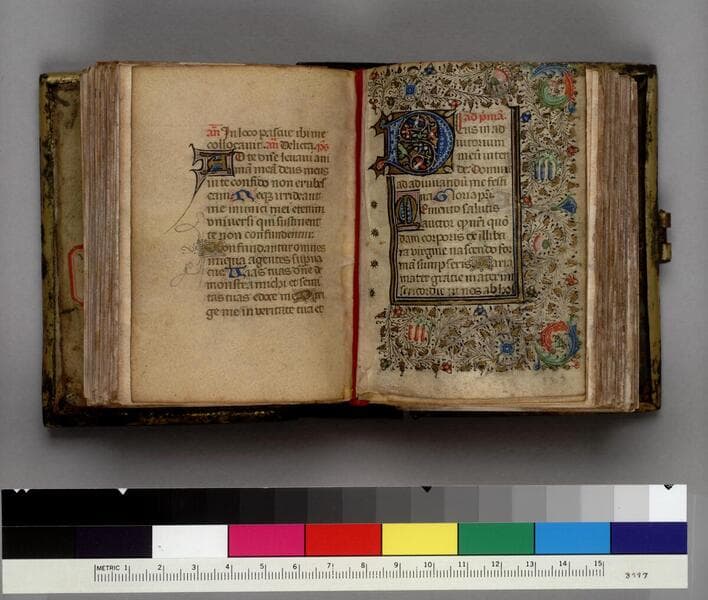 añ In loco pascue ibi me
collocauit. añ Delicta. ps
AD te dñe leuaui ani
mã meã deus meus
in te confido non erubes
cam. Neqz irrideant
me inimici mei etenim
vniuersi qui sustinent
te non confundentur.
Confundantur omnes
iniqua agentes superua
cue. Uias tuas dñe de
monstra michi et semi
tas tuas edoce me. Diri
ge me in veritate tua et
ad pmã.
Deus in ad
iutorium
meũ inten
de. Domine
ad adiuuandũ me festi
na. Gloria pri.
Memento salutis
auctor qm quõ
dam corporis ex illiba
ta virgine nascendo for
mã sumpseris. Maria
mater gratie mater mi
sericordie tu nos ab hos
METRIC 1 2 3 4 5 6 7 8 9 10 11 12 13 14 15